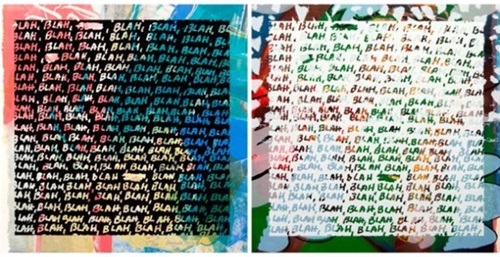 BLAH, BLAH, BLAH, BLAH, BLAH, BLAH
BLAH, BLAH, BLAH, BLAH, BLAH, BLAH,
BLAH, BLAH, BLAH, BLAH, BLAH, BLAH,
BLAH, BLAH, BLAH, BLAH, BLAH,
BLAH, BLAH, BLAH, BLAH, BLAH, BLAH,
BLAH, BLAH, BLAH, BLAH, BLAH, BLAH,
BLAH, BLAH, BLAH, BLAH, BLAH, BLAH,
BLAH, BLAH, BLAH, BLAH, BLAH, BLAH,
BLAH, BLAH, BLAH, BLAH, BLAH, BLAH,
BLAH, BLAH, BLAH, BLAH, BLAH, BLAH,
BLAH, BLAH, BLAH, BLAH, BLAH, BLAH,
BLAH, BLAH, BLAH, BLAH, BLAH, BLAH,
BLAH, BLAH, BLAH, BLAH, BLAH,
BLAH, BLAH, BLAH, BLAH, BLAH, BLAH,
BLAH, BLAH, BLAH, BLAH, BLAH, BLAH,
BLAH, BLAH, BLAH, BLAH, BLAH, BLAH,
BLAH, BLAH, BLAH, BLAH, BLAH, BLAH,
BLAH, BLAH, BLAH, BLAH, BLAH
BLAH, BLAH, BLAH, BLAH, BLAH,
BLAH, BLAH, BLAH, BLAH, BLAH,
BLAH, BLAH, BLAH, BLAH, BLAH,
BLAH, BLAH, BLAH, BLAH, BLAH, BLAH,
BLAH, BLAH, BLAH, BLAH, BLAH, BLAH,
BLAH, BLAH, BLAH, BLAH, BLAH, BLAH,
BLAH, BLAH, BLAH, BLAH, BLAH, BLAH,
BLAH, BLAH, BLAH, BLAH, BLAH, BLAH,
BLAH, BLAH, BLAH, BLAH, BLAH, BLAH,
BLAH, BLAH, BLAH, BLAH, BLAH, BLAH,
BLAH, BLAH, BLAH, BLAH, BLAH, BLAH,
BLAH, BLAH, BLAH, BLAH, BLAH,
BLAH, BLAH, BLAH, BLAH, BLAH, BLAH,
BLAH, BLAH, BLAH, BLAH, BLAH, BLAH,
BLAH, BLAH, BLAH, BLAH, BLAH, BLAH,
BLAH, BLAH, BLAH, BLAH, BLAH, BLAH,